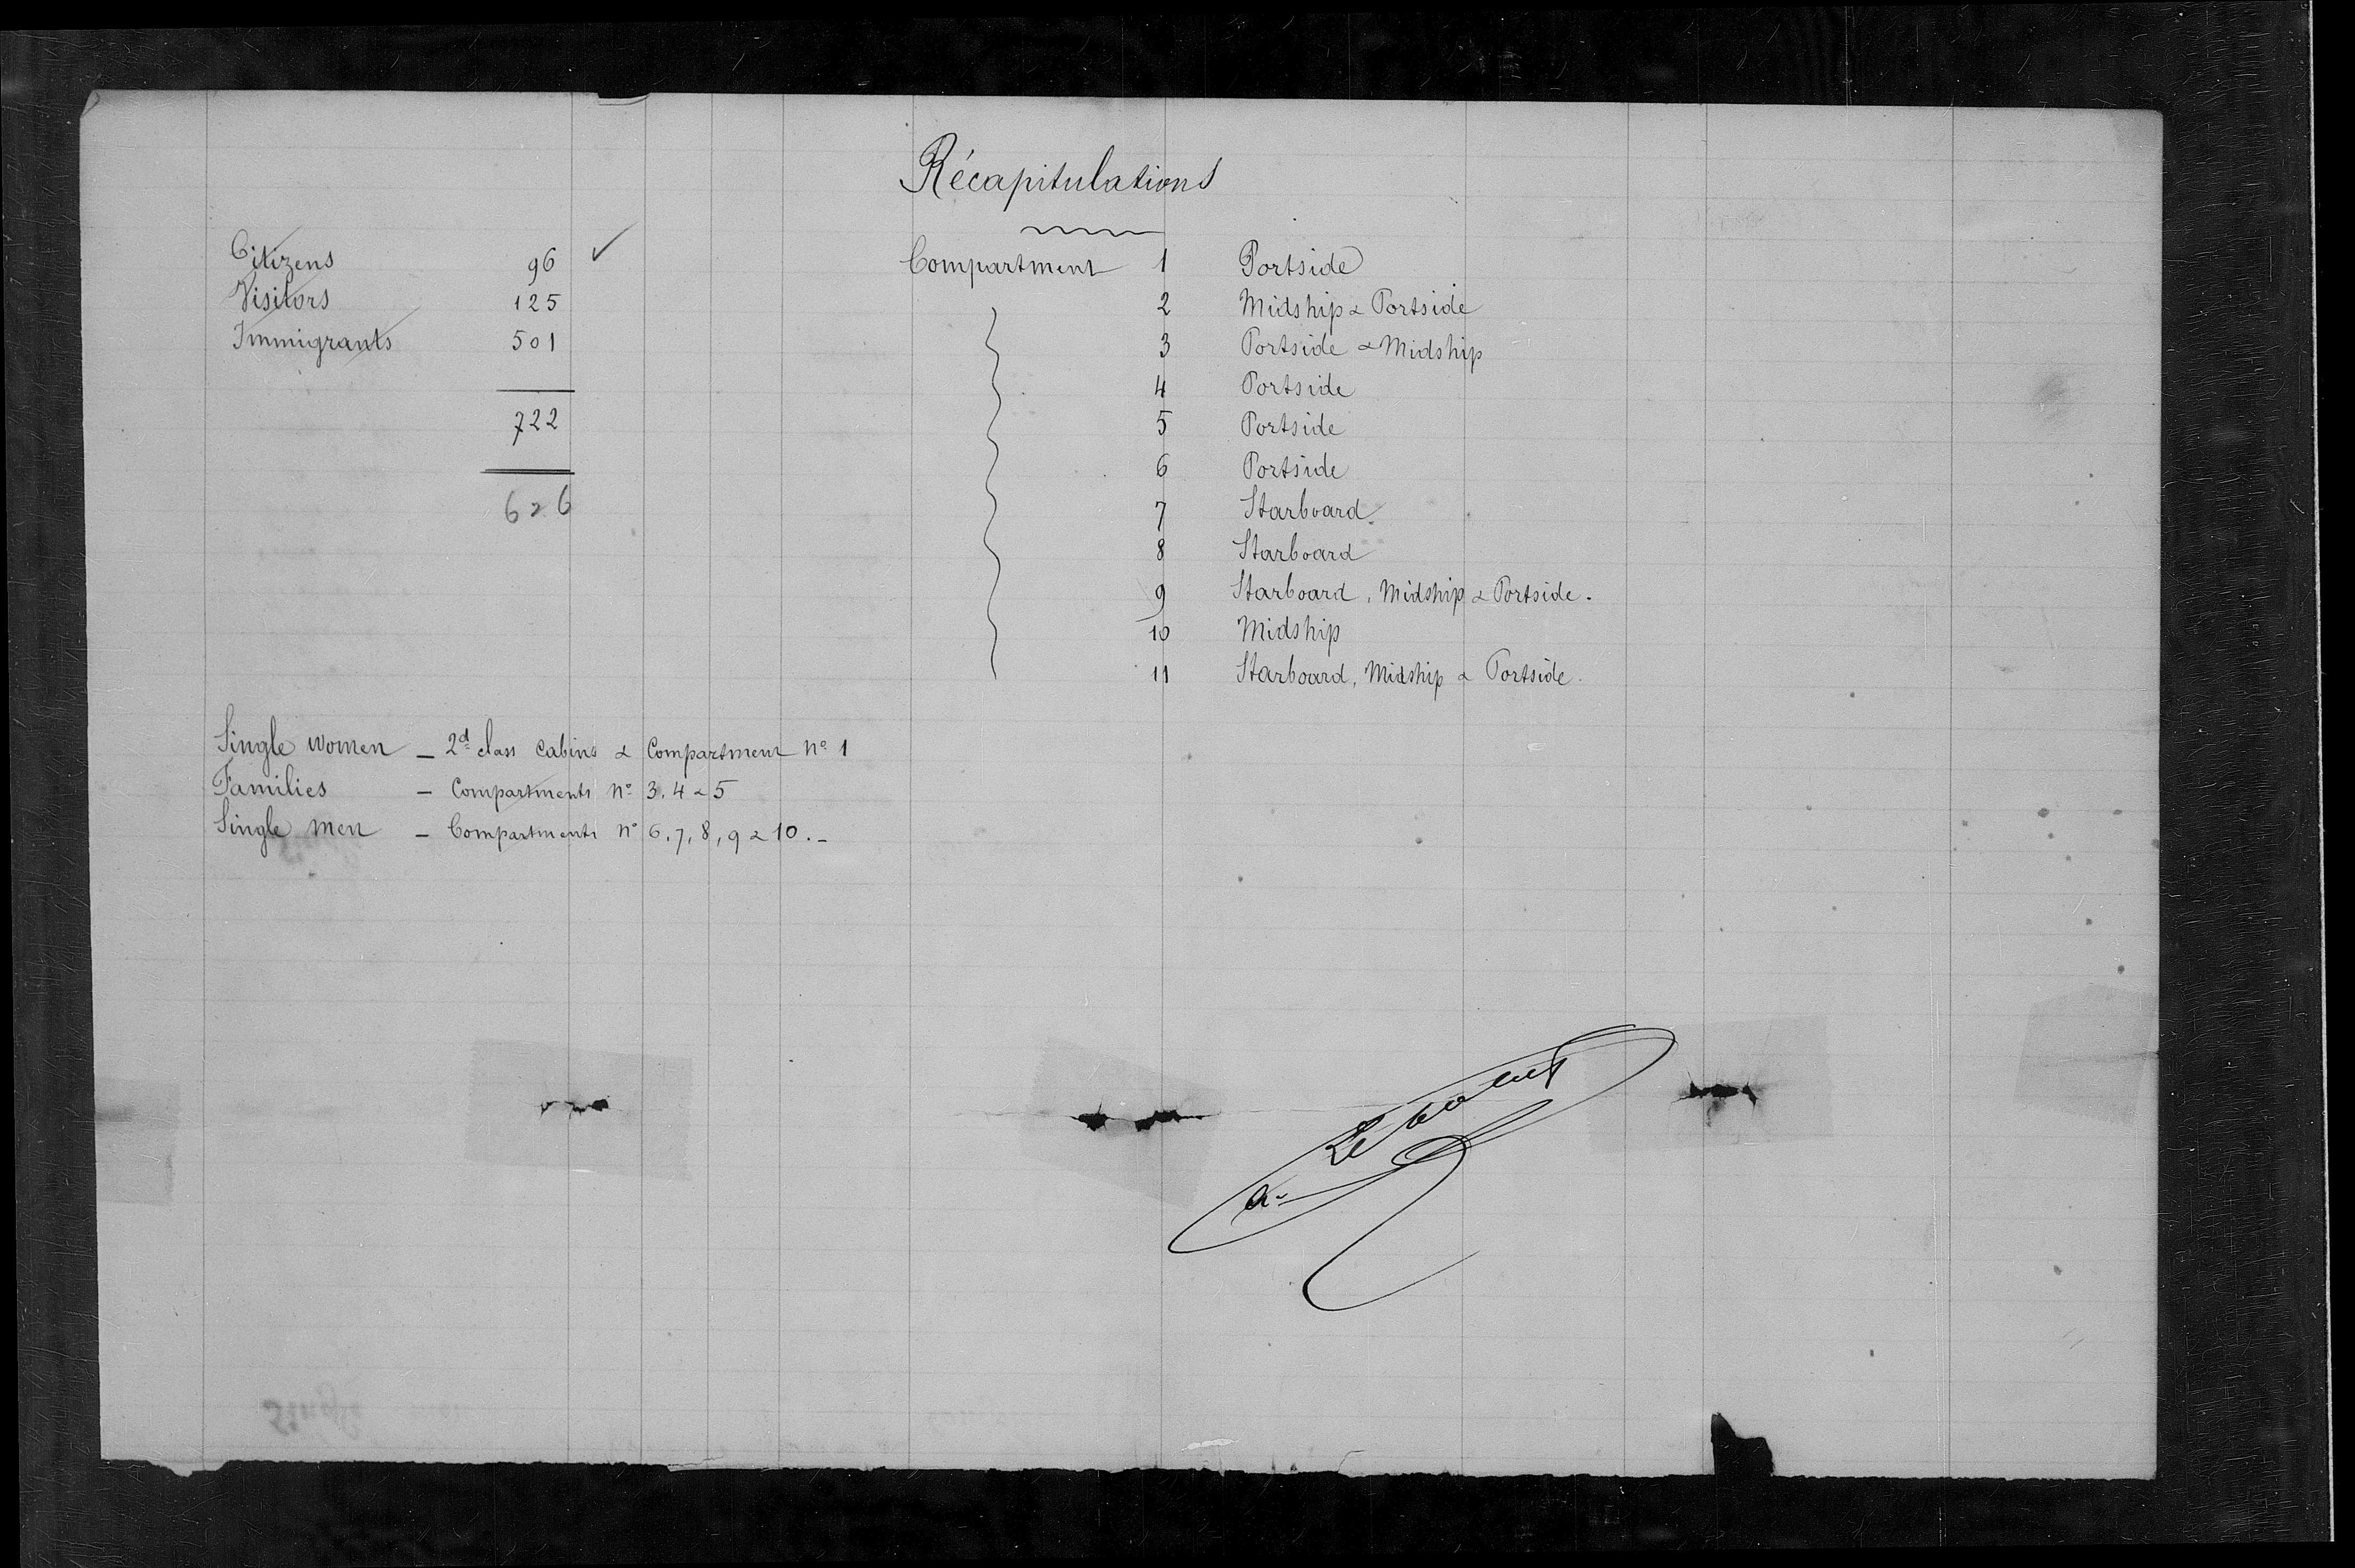 Récapitulations
Citizens 96 ✓
Visitors 125
Immigrants 501
722
626
Compartment 1 Portside
2 Midship & Portside
3 Portside & Midship
4 Portside
5 Portside
6 Portside
7 Starboard
8 Starboard
9 Starboard, Midship & Portside.
10 Midship
11 Starboard, Midship & Portside.
Single women — 2d class cabins & Compartment No 1
Families — Compartments No 3. 4 & 5
Single men — Compartments No 6, 7, 8, 9 & 10. —